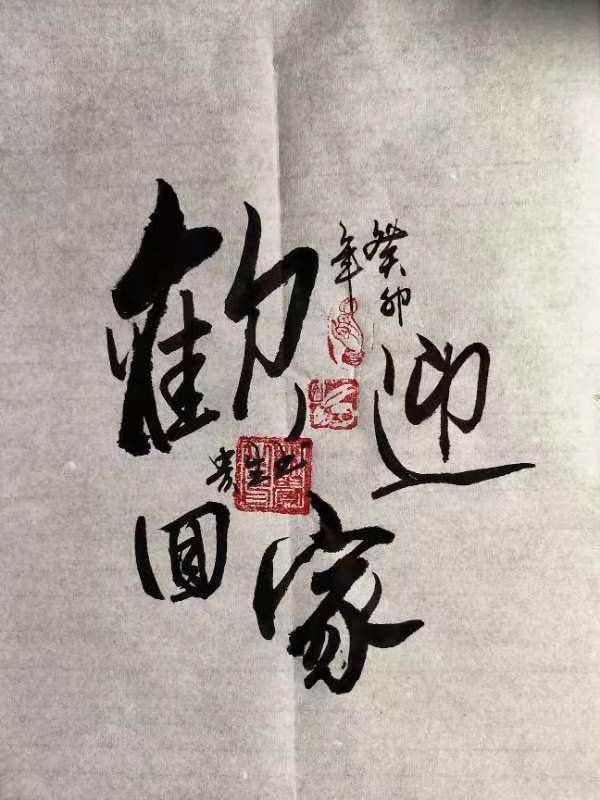 歡迎
回家
癸卯
年